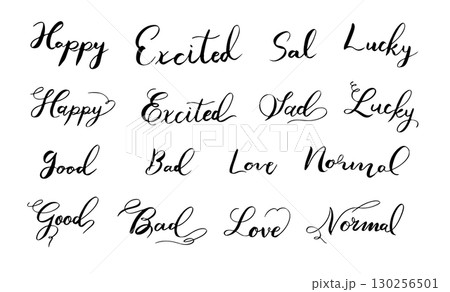 Happy Excited Sal Lucky
Happy Excited Sad Lucky
Good Bad Love Normal
Good Bad Love Normal
PIXTA
130256501